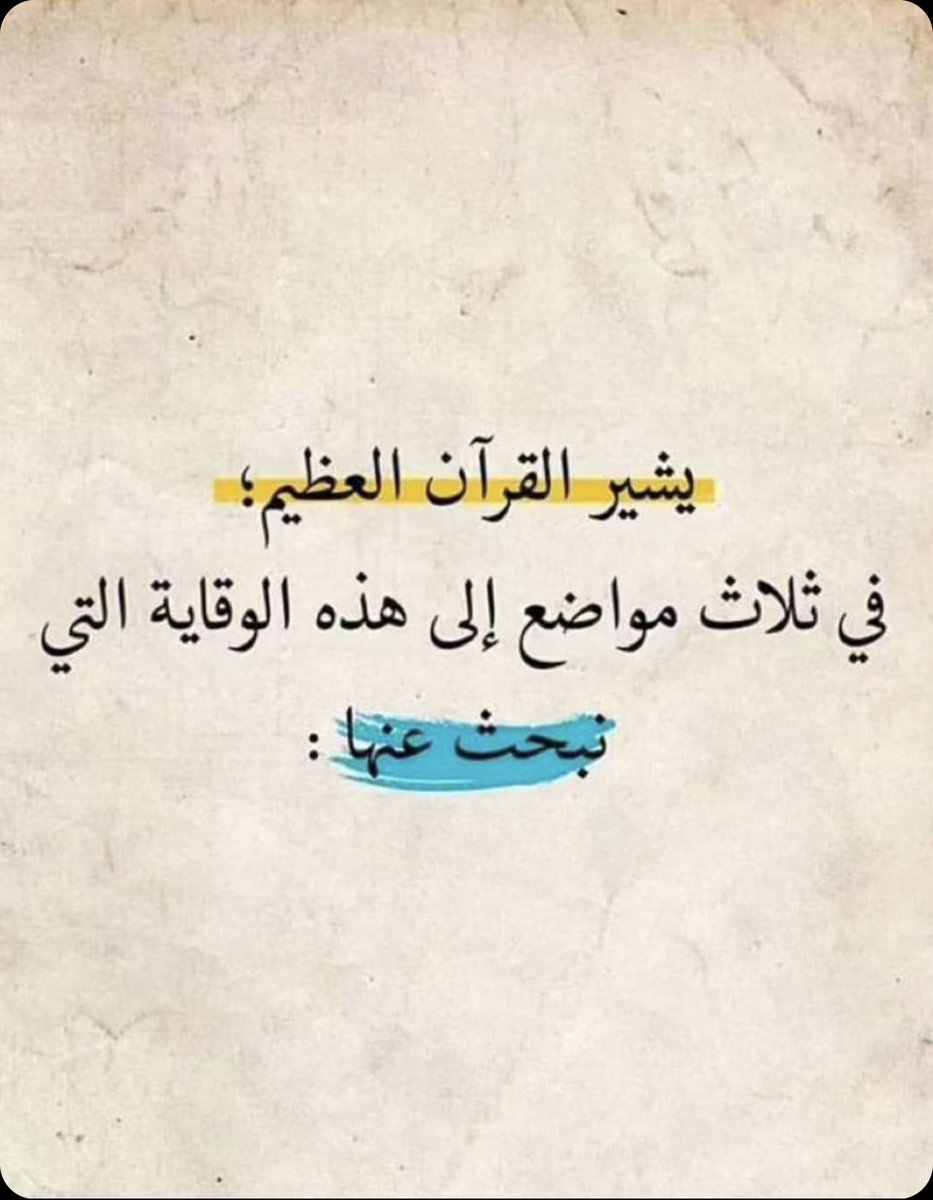 يشير القرآن العظيم؛
في ثلاث مواضع إلى هذه الوقاية التي
نبحث عنها :